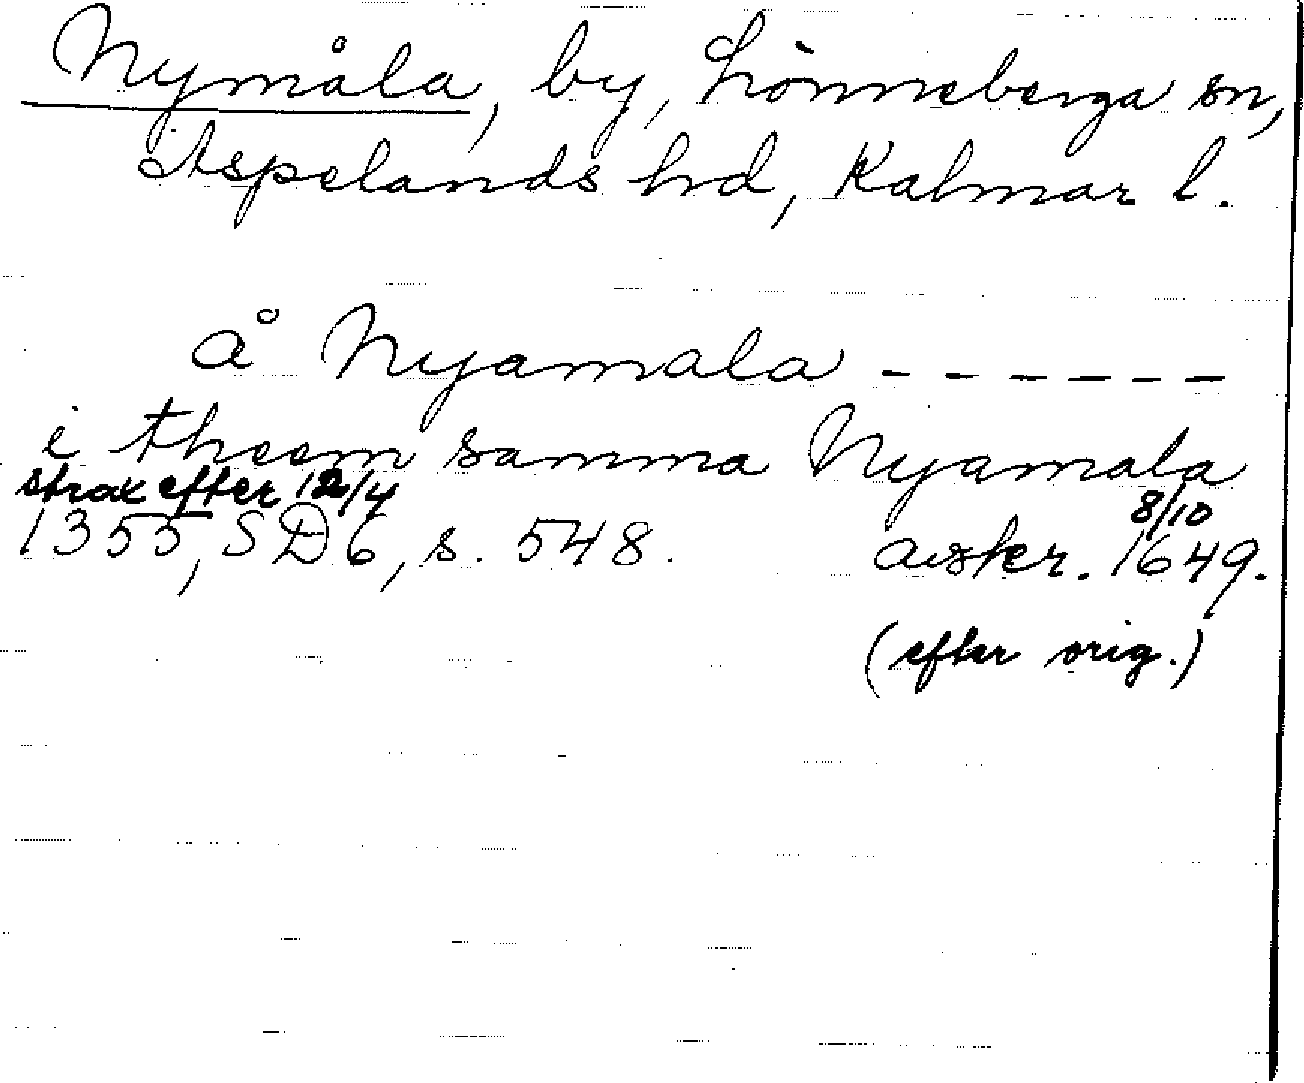 Nymåla, by, Lönneberga sn,
Aspelands hd, Kalmar l.
å Nyamala - - - - - -
i theem samma Nyamala
strax efter 12/4 8/10
1355, SD 6, s. 548. avskr. 1649.
(efter orig.)